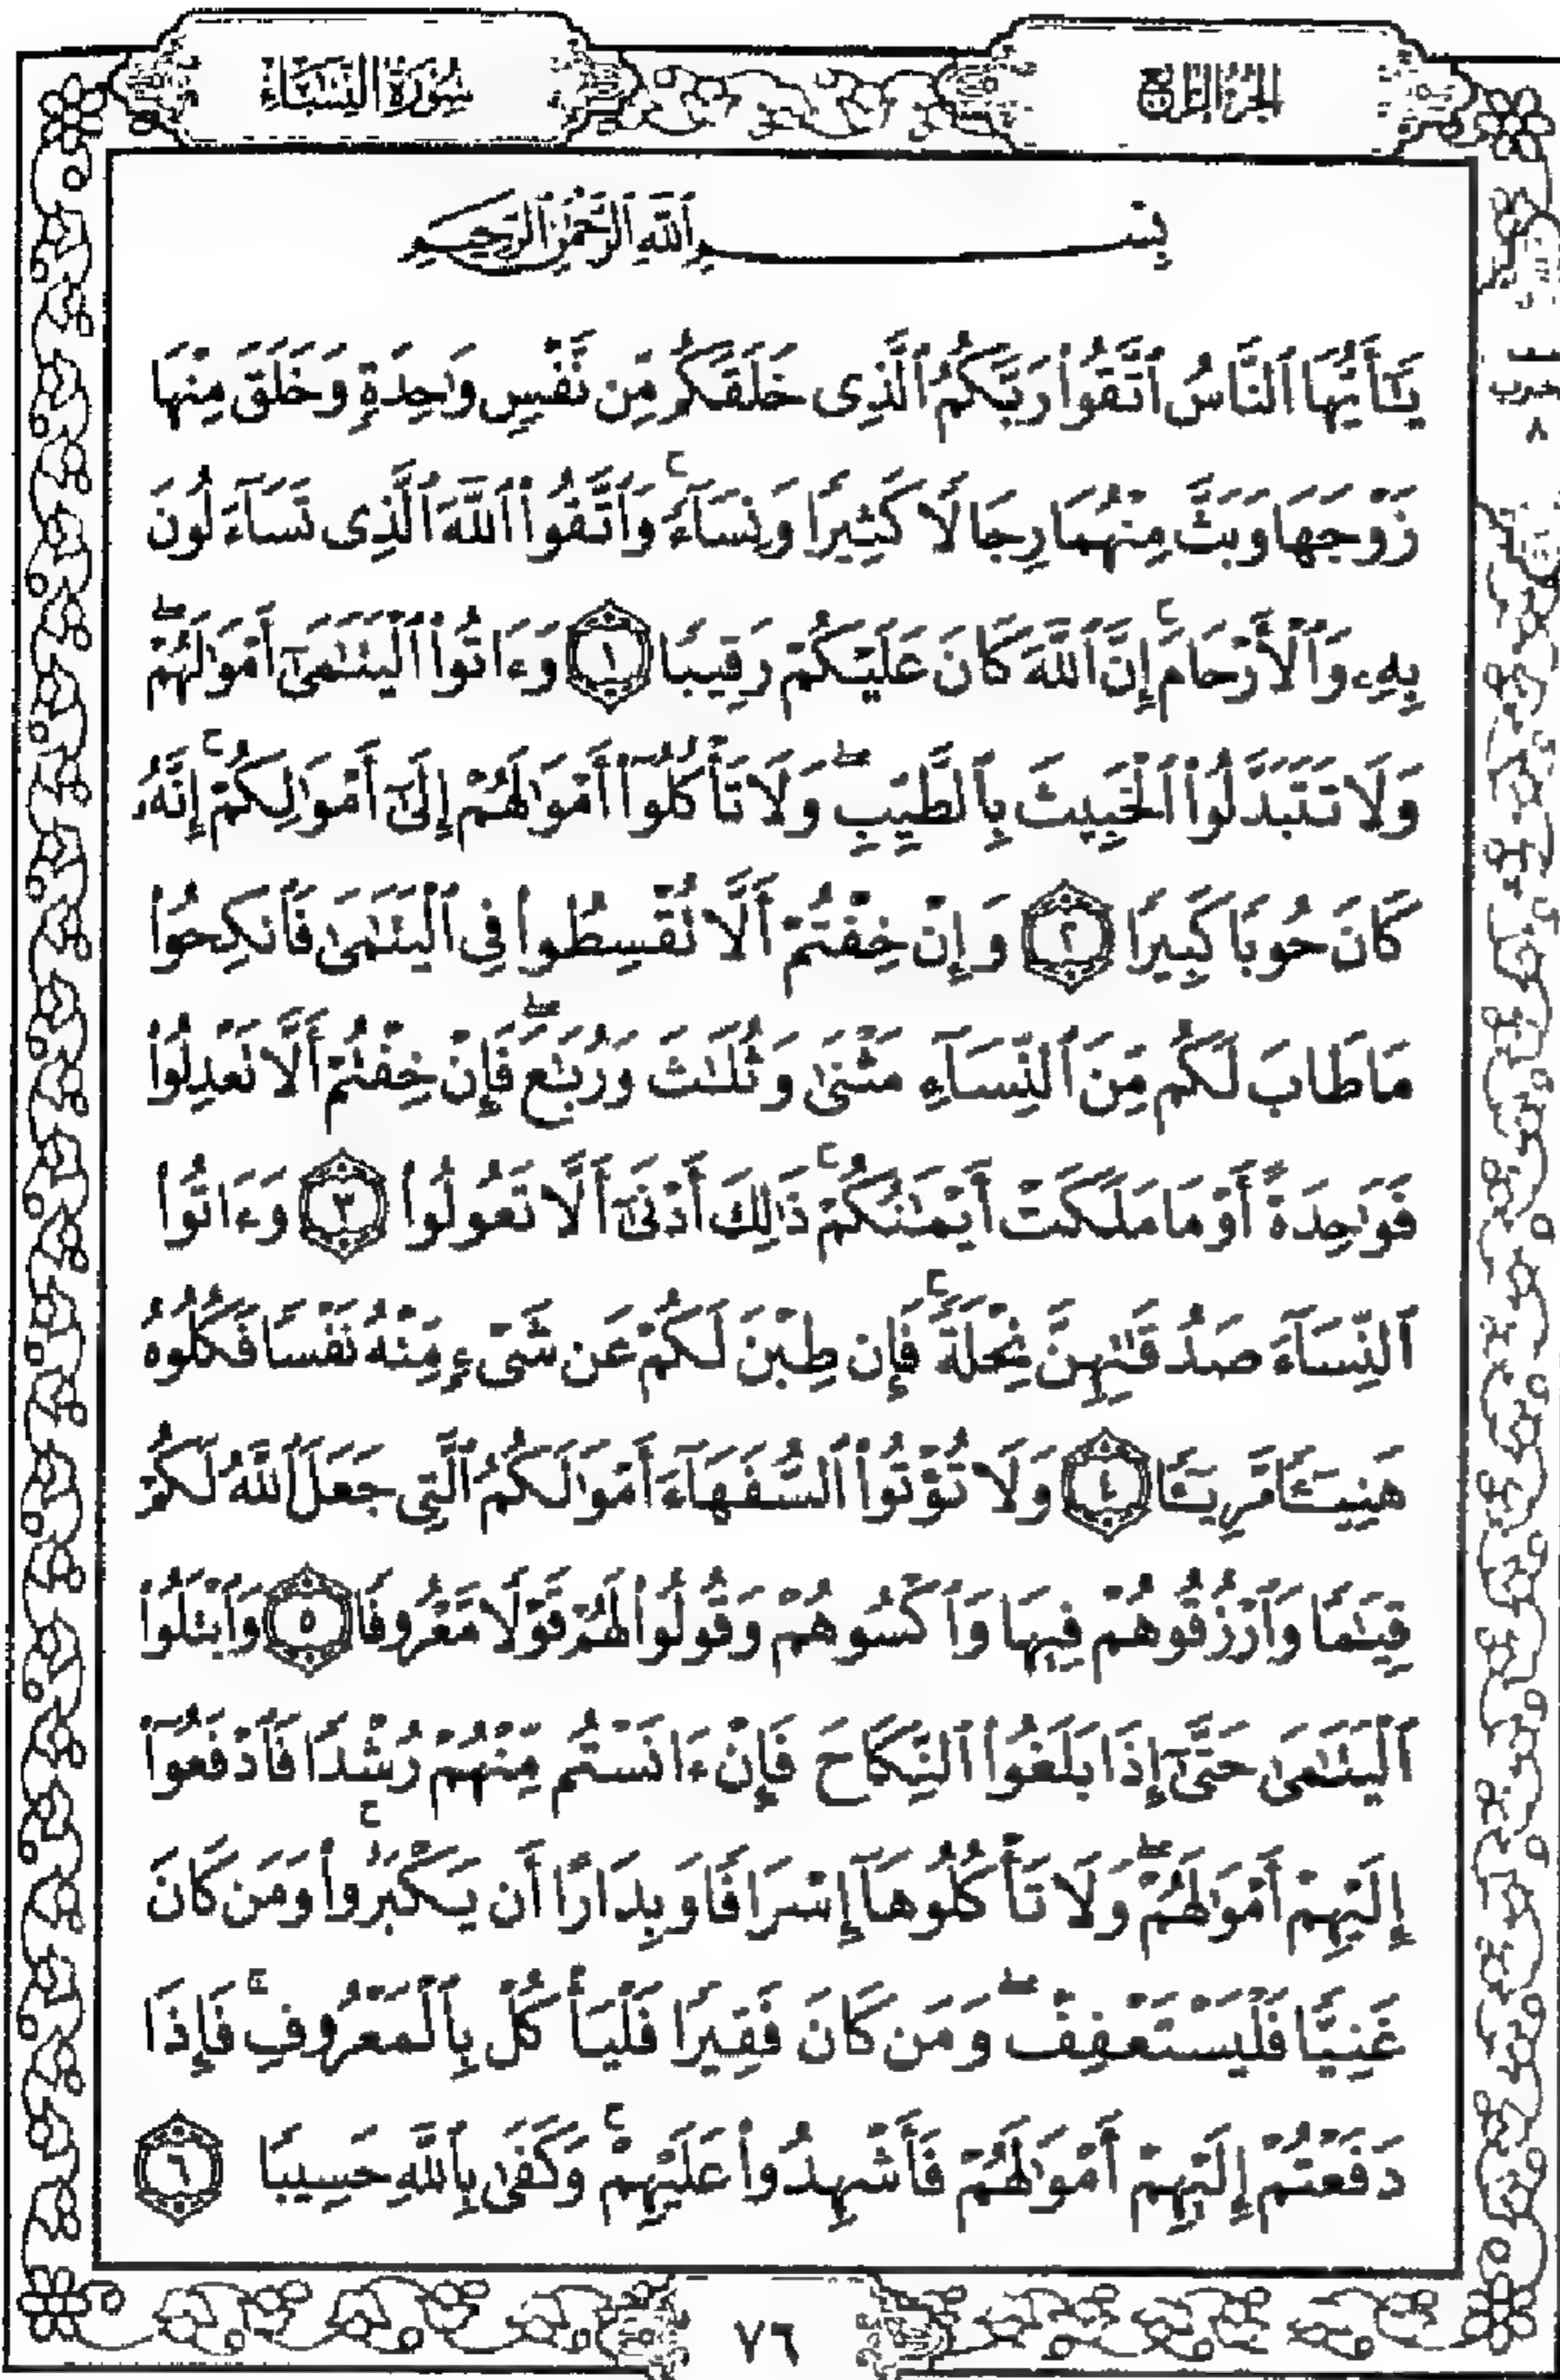 الجزء الرابع
سورة النساء
بِسْمِ ٱللَّهِ ٱلرَّحْمَٰنِ ٱلرَّحِيمِ
يَٰٓأَيُّهَا ٱلنَّاسُ ٱتَّقُوا۟ رَبَّكُمُ ٱلَّذِى خَلَقَكُم مِّن نَّفْسٍ وَٰحِدَةٍ وَخَلَقَ مِنْهَا
زَوْجَهَا وَبَثَّ مِنْهُمَا رِجَالًا كَثِيرًا وَنِسَآءً ۚ وَٱتَّقُوا۟ ٱللَّهَ ٱلَّذِى تَسَآءَلُونَ
بِهِۦ وَٱلْأَرْحَامَ ۚ إِنَّ ٱللَّهَ كَانَ عَلَيْكُمْ رَقِيبًا ١ وَءَاتُوا۟ ٱلْيَتَٰمَىٰٓ أَمْوَٰلَهُمْ ۖ
وَلَا تَتَبَدَّلُوا۟ ٱلْخَبِيثَ بِٱلطَّيِّبِ ۖ وَلَا تَأْكُلُوٓا۟ أَمْوَٰلَهُمْ إِلَىٰٓ أَمْوَٰلِكُمْ ۚ إِنَّهُۥ
كَانَ حُوبًا كَبِيرًا ٢ وَإِنْ خِفْتُمْ أَلَّا تُقْسِطُوا۟ فِى ٱلْيَتَٰمَىٰ فَٱنكِحُوا۟
مَا طَابَ لَكُم مِّنَ ٱلنِّسَآءِ مَثْنَىٰ وَثُلَٰثَ وَرُبَٰعَ ۖ فَإِنْ خِفْتُمْ أَلَّا تَعْدِلُوا۟
فَوَٰحِدَةً أَوْ مَا مَلَكَتْ أَيْمَٰنُكُمْ ۚ ذَٰلِكَ أَدْنَىٰٓ أَلَّا تَعُولُوا۟ ٣ وَءَاتُوا۟
ٱلنِّسَآءَ صَدُقَٰتِهِنَّ نِحْلَةً ۚ فَإِن طِبْنَ لَكُمْ عَن شَىْءٍ مِّنْهُ نَفْسًا فَكُلُوهُ
هَنِيٓـًٔا مَّرِيٓـًٔا ٤ وَلَا تُؤْتُوا۟ ٱلسُّفَهَآءَ أَمْوَٰلَكُمُ ٱلَّتِى جَعَلَ ٱللَّهُ لَكُمْ
قِيَٰمًا وَٱرْزُقُوهُمْ فِيهَا وَٱكْسُوهُمْ وَقُولُوا۟ لَهُمْ قَوْلًا مَّعْرُوفًا ٥ وَٱبْتَلُوا۟
ٱلْيَتَٰمَىٰ حَتَّىٰٓ إِذَا بَلَغُوا۟ ٱلنِّكَاحَ فَإِنْ ءَانَسْتُم مِّنْهُمْ رُشْدًا فَٱدْفَعُوٓا۟
إِلَيْهِمْ أَمْوَٰلَهُمْ ۖ وَلَا تَأْكُلُوهَآ إِسْرَافًا وَبِدَارًا أَن يَكْبَرُوا۟ ۚ وَمَن كَانَ
غَنِيًّا فَلْيَسْتَعْفِفْ ۖ وَمَن كَانَ فَقِيرًا فَلْيَأْكُلْ بِٱلْمَعْرُوفِ ۚ فَإِذَا
دَفَعْتُمْ إِلَيْهِمْ أَمْوَٰلَهُمْ فَأَشْهِدُوا۟ عَلَيْهِمْ ۚ وَكَفَىٰ بِٱللَّهِ حَسِيبًا ٦
حزب
٨
٧٦